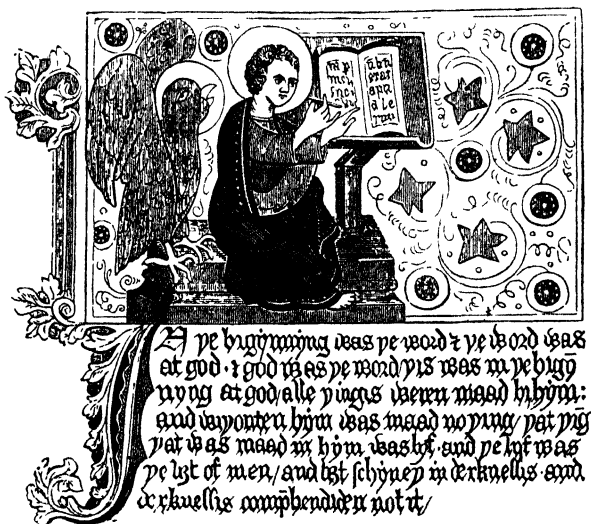 IN ye bigynnyng was ye word ⁊ ye word was
at god · ⁊ god was ye word/ yis was in ye bigyn̄
nyng at god/ alle yingis weren maad bi hym:
and wiyouten hym was maad no ying/ yat yīg
yat was maad in hym was lyf · and ye lyf was
ye lyȝt of men/ and lyȝt schyney in derknessis · and
derknessis comp̄hendiden not it/